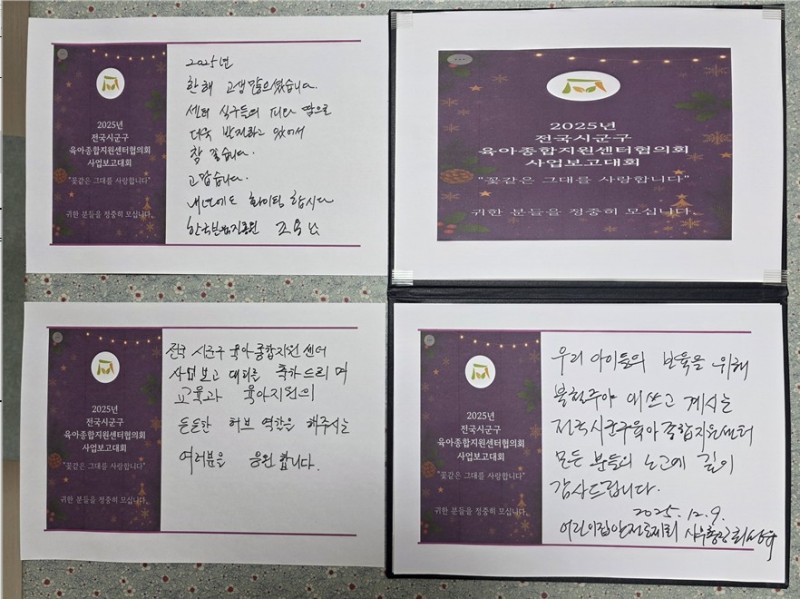 2025년
전국시군구
육아종합지원센터협의회
사업보고대회
"꽃같은 그대를 사랑합니다"
귀한 분들을 정중히 모십니다.
2025년
한해 고생많으셨습니다
센터 식구들의 피다 땀으로
더욱 발전하고 있어서
참 좋습니다.
고맙습니다.
내년에도 화이팅 합시다
2025년
전국시군구
육아종합지원센터협의회
사업보고대회
"꽃같은 그대를 사랑합니다"
귀한 분들을 정중히 모십니다.
2025년
전국시군구
육아종합지원센터협의회
사업보고대회
"꽃같은 그대를 사랑합니다"
귀한 분들을 정중히 모십니다.
전국 시군구 육아종합지원센터
사업보고 대회를 축하드리며
교육과 육아지원의
든든한 허브 역할을 해주시는
여러분을 응원합니다.
2025년
전국시군구
육아종합지원센터협의회
사업보고대회
"꽃같은 그대를 사랑합니다"
귀한 분들을 정중히 모십니다.
우리 아이들의 보육을 위해
불철주야 애쓰고 계시는
전국시군구육아종합지원센터
모든 분들의 노고에 깊이
감사드립니다.
2025. 12. 9.
어린이집안전공제회